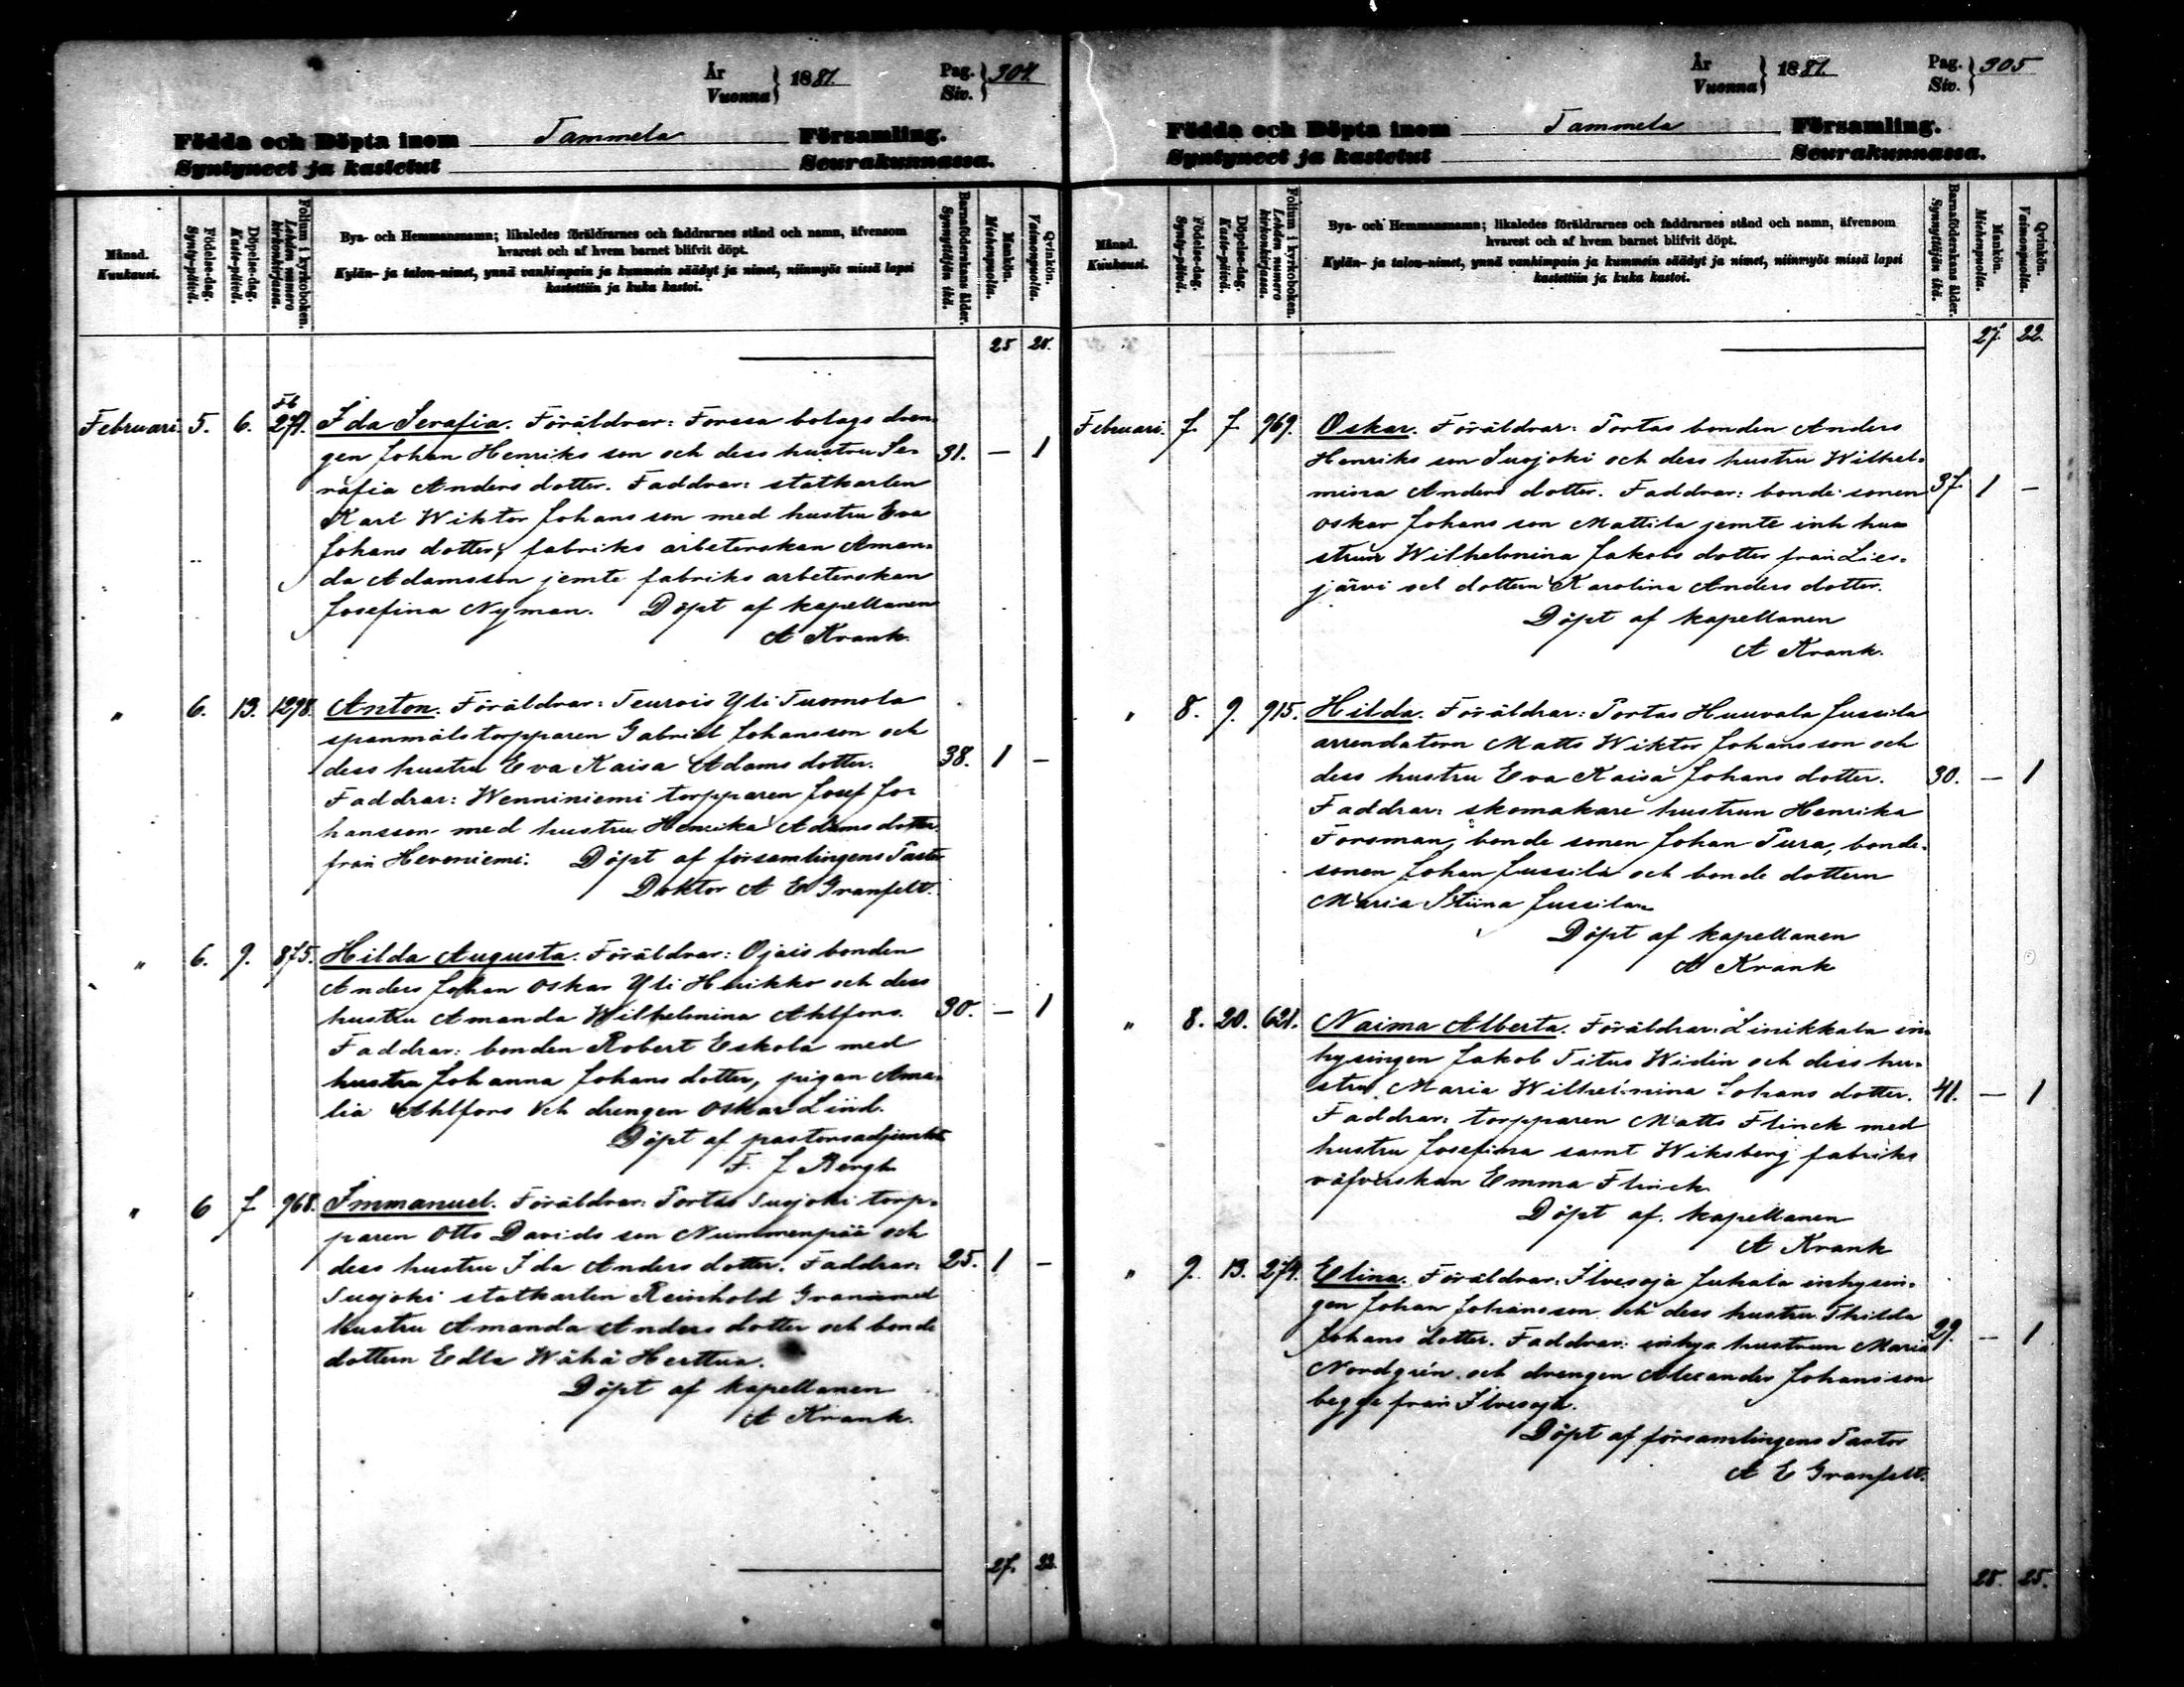 År
Vuonna } 1881. Pag.
Siv. } 304.
Födda och Döpta inom Tammela Församling.
Syntyneet ja kastetut Seurakunnassa.
Månad.
Kuukausi.
Födelse-dag.
Synty-päivä.
Döpelse-dag.
Kaste-päivä.
Folium i kyrkoboken.
Lehden numero
kirkonkirjassa.
Bya- och Hemmansnamn; likaledes föräldrarnes och faddrarnes stånd och namn, äfvensom
hvarest och af hvem barnet blifvit döpt.
Kylän- ja talon-nimet, ynnä vanhimpain ja kummein säädyt ja nimet, niinmyös missä lapsi
kastettiin ja kuka kastoi.
Barnaföderskans ålder.
Synnyttäjän ikä.
Mankön.
Miehenpuolta.
Qvinkön.
Vaimonpuolta.
25
Februari. 5. 6. Ida Serafia. Föräldrar: Forssa bolags dren-
gen Johan Henriks son och dess hustru Se- 31. — 1
rafia Anders dotter. Faddrar: statkarlen
Karl Wiktor Johans son med hustru Eva
Johans dotter, fabriks arbeterskan Aman-
da Adamsson jemte fabriks arbeterskan
Josefina Nyman. Döpt af kapellanen
A Krank.
" 6. 13. 1298. Anton. Föräldrar: Teurois Yli Tuomola
spanmåls torpparen Gabriel Johansson och
dess hustru Eva Kaisa Adams dotter. 38. 1 —
Faddrar: Wenniniemi torpparen Josef Jo-
hansson med hustru Henrika Adams dotter
från Hevoniemi. Döpt af församlingens Pastor
Doktor A E Granfelt.
" 6. 9. 875. Hilda Augusta. Föräldrar: Ojais bonden
Anders Johan Oskar Yli Heikko och dess
hustru Amanda Wilhelmina Ahlfors. 30. — 1
Faddrar: bonden Robert Eskola med
hustru Johanna Johans dotter, pigan Ama-
lia Ahlfors och drengen Oskar Lind.
Döpt af pastorsadjunkt
F. J Bergh
" 6 7 968. Immanuel. Föräldrar: Portas Suojoki torp-
paren Otto Davids son Nummenpää och
dess hustru Ida Anders dotter. Faddrar: 25. 1 —
Suojoki statkarlen Reinhold Gran med
hustru Amanda Anders dotter och bonde
dottern Edla Wähä Herttua.
Döpt af kapellanen
A Krank.
27. 22.
År
Vuonna } 1881. Pag.
Siv. } 305
Födda och Döpta inom Tammela Församling.
Syntyneet ja kastetut Seurakunnassa.
Månad.
Kuukausi.
Födelse-dag.
Synty-päivä.
Döpelse-dag.
Kaste-päivä.
Folium i kyrkoboken.
Lehden numero
kirkonkirjassa.
Bya- och Hemmansnamn; likaledes föräldrarnes och faddrarnes stånd och namn, äfvensom
hvarest och af hvem barnet blifvit döpt.
Kylän- ja talon-nimet, ynnä vanhimpain ja kummein säädyt ja nimet, niinmyös missä lapsi
kastettiin ja kuka kastoi.
Barnaföderskans ålder.
Synnyttäjän ikä.
Mankön.
Miehenpuolta.
Qvinkön.
Vaimonpuolta.
27. 22.
Februari. 7. 7. 969. Oskar. Föräldrar: Portas bonden Anders
Henriks son Suojoki och dess hustru Wilhel-
mina Anders dotter. Faddrar: bonde sonen 37. 1 —
Oskar Johans son Mattila jemte inh hu-
strun Wilhelmina Jakobs dotter från Lies-
järvi och dottern Karolina Anders dotter.
Döpt af kapellanen
A Krank.
" 8. 9. 915. Hilda. Föräldrar: Portas Huuvala Jussila
arrendatorn Matts Wiktor Johans son och
dess hustru Eva Kaisa Johans dotter. 30. — 1
Faddrar: skomakare hustrun Henrika
Forsman, bonde sonen Johan Pura, bonde-
sonen Johan Jussila och bonde dottern
Maria Stiina Jussila
Döpt af kapellanen
A Krank
" 8. 20. 621. Naima Alberta. Föräldrar: Linikkala in-
hysingen Jakob Titus Widén och dess hu-
stru Maria Wilhelmina Johans dotter. 41. — 1
Faddrar: torpparen Matts Flinck med
hustru Josefina samt Wiksberg fabriks
väfverskan Emma Flinck
Döpt af kapellanen
A Krank
" 9. 13. 274. Elina. Föräldrar: Ilvesoja Jukala inhysin-
gen Johan Johansson och dess hustru Thilda
Johans dotter. Faddrar: inhys hustrun Maria 29. — 1
Nordgrén och drengen Alexander Johansson
begge från Ilvesoja.
Döpt af församlingens Pastor
A E Granfelt.
28. 25.